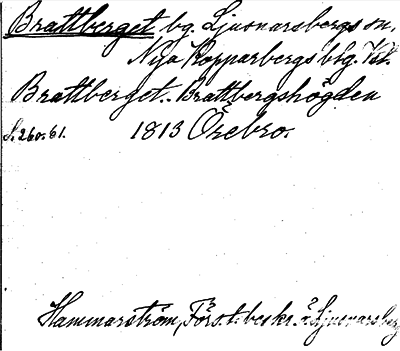 Brattberget bg. Ljusnarsbergs sn,
Nya Kopparbergs blg. Vstl.
Brattberget. Brattbergshögden
S. 260. 61. 1813 Örebro.
Hammarström, Förs. t. beskr. å Ljusnarsberg